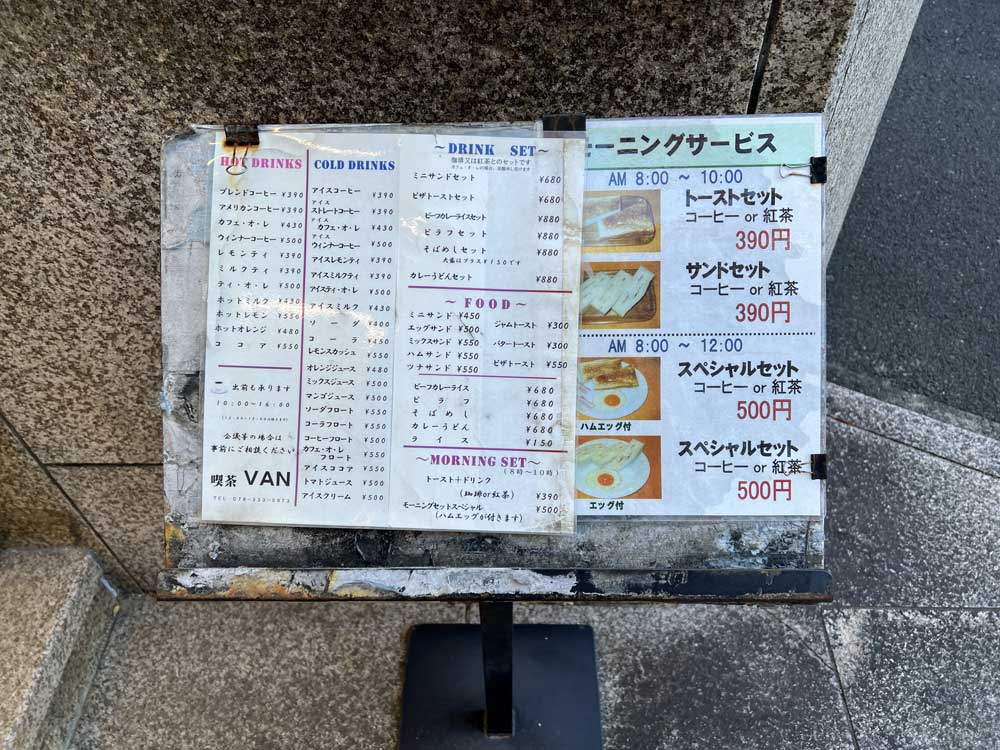 HOT DRINKS
ブレンドコーヒー ¥390
アメリカンコーヒー ¥390
カフェ・オ・レ ¥430
ウィンナーコーヒー ¥500
レモンティ ¥390
ミルクティ ¥390
ティ・オ・レ ¥500
ホットミルク ¥430
ホットレモン ¥550
ホットオレンジ ¥480
ココア ¥550
出前も承ります
10:00〜16:00
会議等の場合は
事前にご相談ください
喫茶 VAN
COLD DRINKS
アイスコーヒー ¥390
アイス
ストレートコーヒー ¥390
アイス
カフェ・オ・レ ¥430
アイス
ウィンナーコーヒー ¥500
アイスレモンティ ¥390
アイスミルクティ ¥390
アイスティ・オ・レ ¥500
アイスミルク ¥430
ソーダ ¥400
コーラ ¥450
レモンスカッシュ ¥550
オレンジジュース ¥480
ミックスジュース ¥500
マンゴジュース ¥500
ソーダフロート ¥550
コーラフロート ¥550
コーヒーフロート ¥500
カフェ・オ・レ
フロート ¥550
アイスココア ¥550
トマトジュース ¥500
アイスクリーム ¥500
〜DRINK SET〜
珈琲又は紅茶とのセットです
ミニサンドセット ¥680
ピザトーストセット ¥680
ビーフカレーライスセット ¥880
ピラフセット ¥880
そばめしセット ¥880
大盛はプラス¥150です
カレーうどんセット ¥880
〜FOOD〜
ミニサンド ¥450
エッグサンド ¥500
ミックスサンド ¥550
ハムサンド ¥550
ツナサンド ¥550
ジャムトースト ¥300
バタートースト ¥300
ピザトースト ¥550
ビーフカレーライス ¥680
ピラフ ¥680
そばめし ¥680
カレーうどん ¥680
ライス ¥150
〜MORNING SET〜
(8時〜10時)
トースト+ドリンク
(珈琲or紅茶) ¥390
モーニングセットスペシャル ¥500
(ハムエッグが付きます)
モーニングサービス
AM 8:00 ~ 10:00
トーストセット
コーヒー or 紅茶
390円
サンドセット
コーヒー or 紅茶
390円
AM 8:00 ~ 12:00
スペシャルセット
コーヒー or 紅茶
500円
ハムエッグ付
スペシャルセット
コーヒー or 紅茶
500円
エッグ付